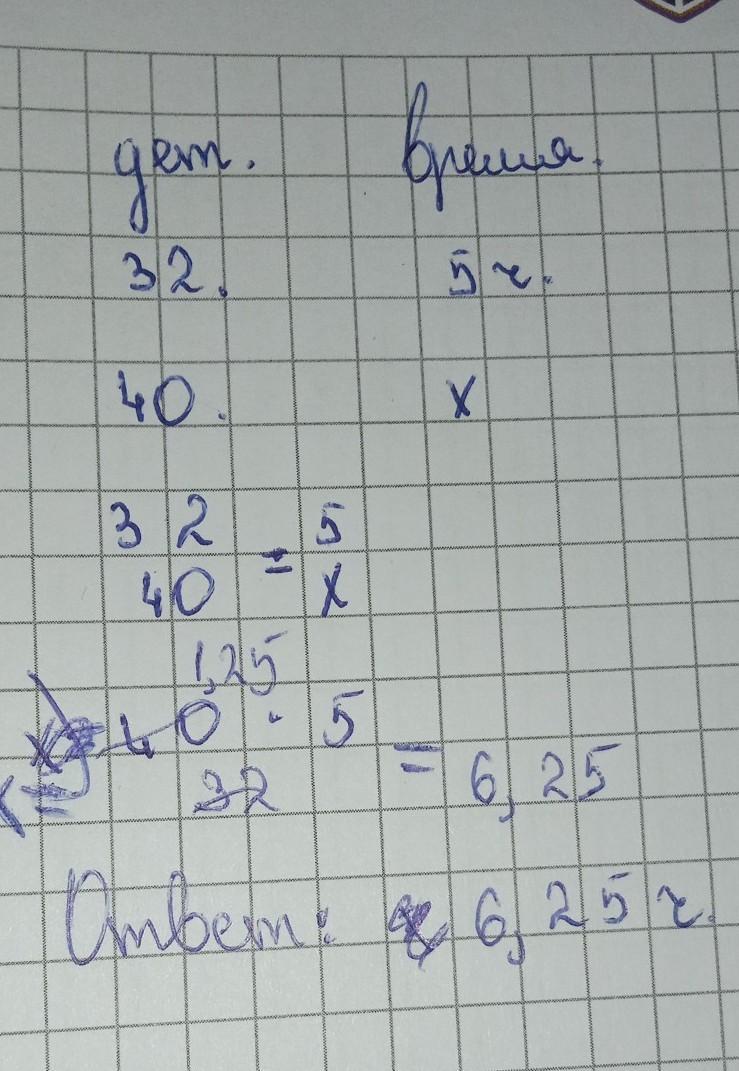 дет. время.
32. 5 ч.
40. х
32 = 5
40 х
1,25
х = 40 · 5 = 6,25
32
Ответ: 6,25 ч.